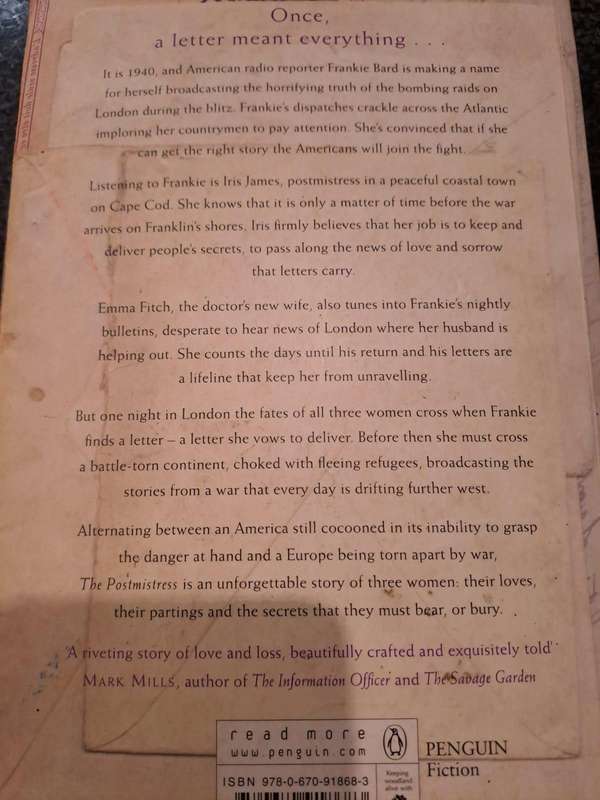 Once,
a letter meant everything . . .
It is 1940, and American radio reporter Frankie Bard is making a name
for herself broadcasting the horrifying truth of the bombing raids on
London during the blitz. Frankie's dispatches crackle across the Atlantic
imploring her countrymen to pay attention. She's convinced that if she
can get the right story the Americans will join the fight.
Listening to Frankie is Iris James, postmistress in a peaceful coastal town
on Cape Cod. She knows that it is only a matter of time before the war
arrives on Franklin's shores. Iris firmly believes that her job is to keep and
deliver people's secrets, to pass along the news of love and sorrow
that letters carry.
Emma Fitch, the doctor's new wife, also tunes into Frankie's nightly
bulletins, desperate to hear news of London where her husband is
helping out. She counts the days until his return and his letters are
a lifeline that keep her from unravelling.
But one night in London the fates of all three women cross when Frankie
finds a letter – a letter she vows to deliver. Before then she must cross
a battle-torn continent, choked with fleeing refugees, broadcasting the
stories from a war that every day is drifting further west.
Alternating between an America still cocooned in its inability to grasp
the danger at hand and a Europe being torn apart by war,
The Postmistress is an unforgettable story of three women: their loves,
their partings and the secrets that they must bear, or bury.
'A riveting story of love and loss, beautifully crafted and exquisitely told'
MARK MILLS, author of The Information Officer and The Savage Garden
read more
www.penguin.com
PENGUIN
Fiction
ISBN 978-0-670-91868-3
Keeping
woodland
alive with